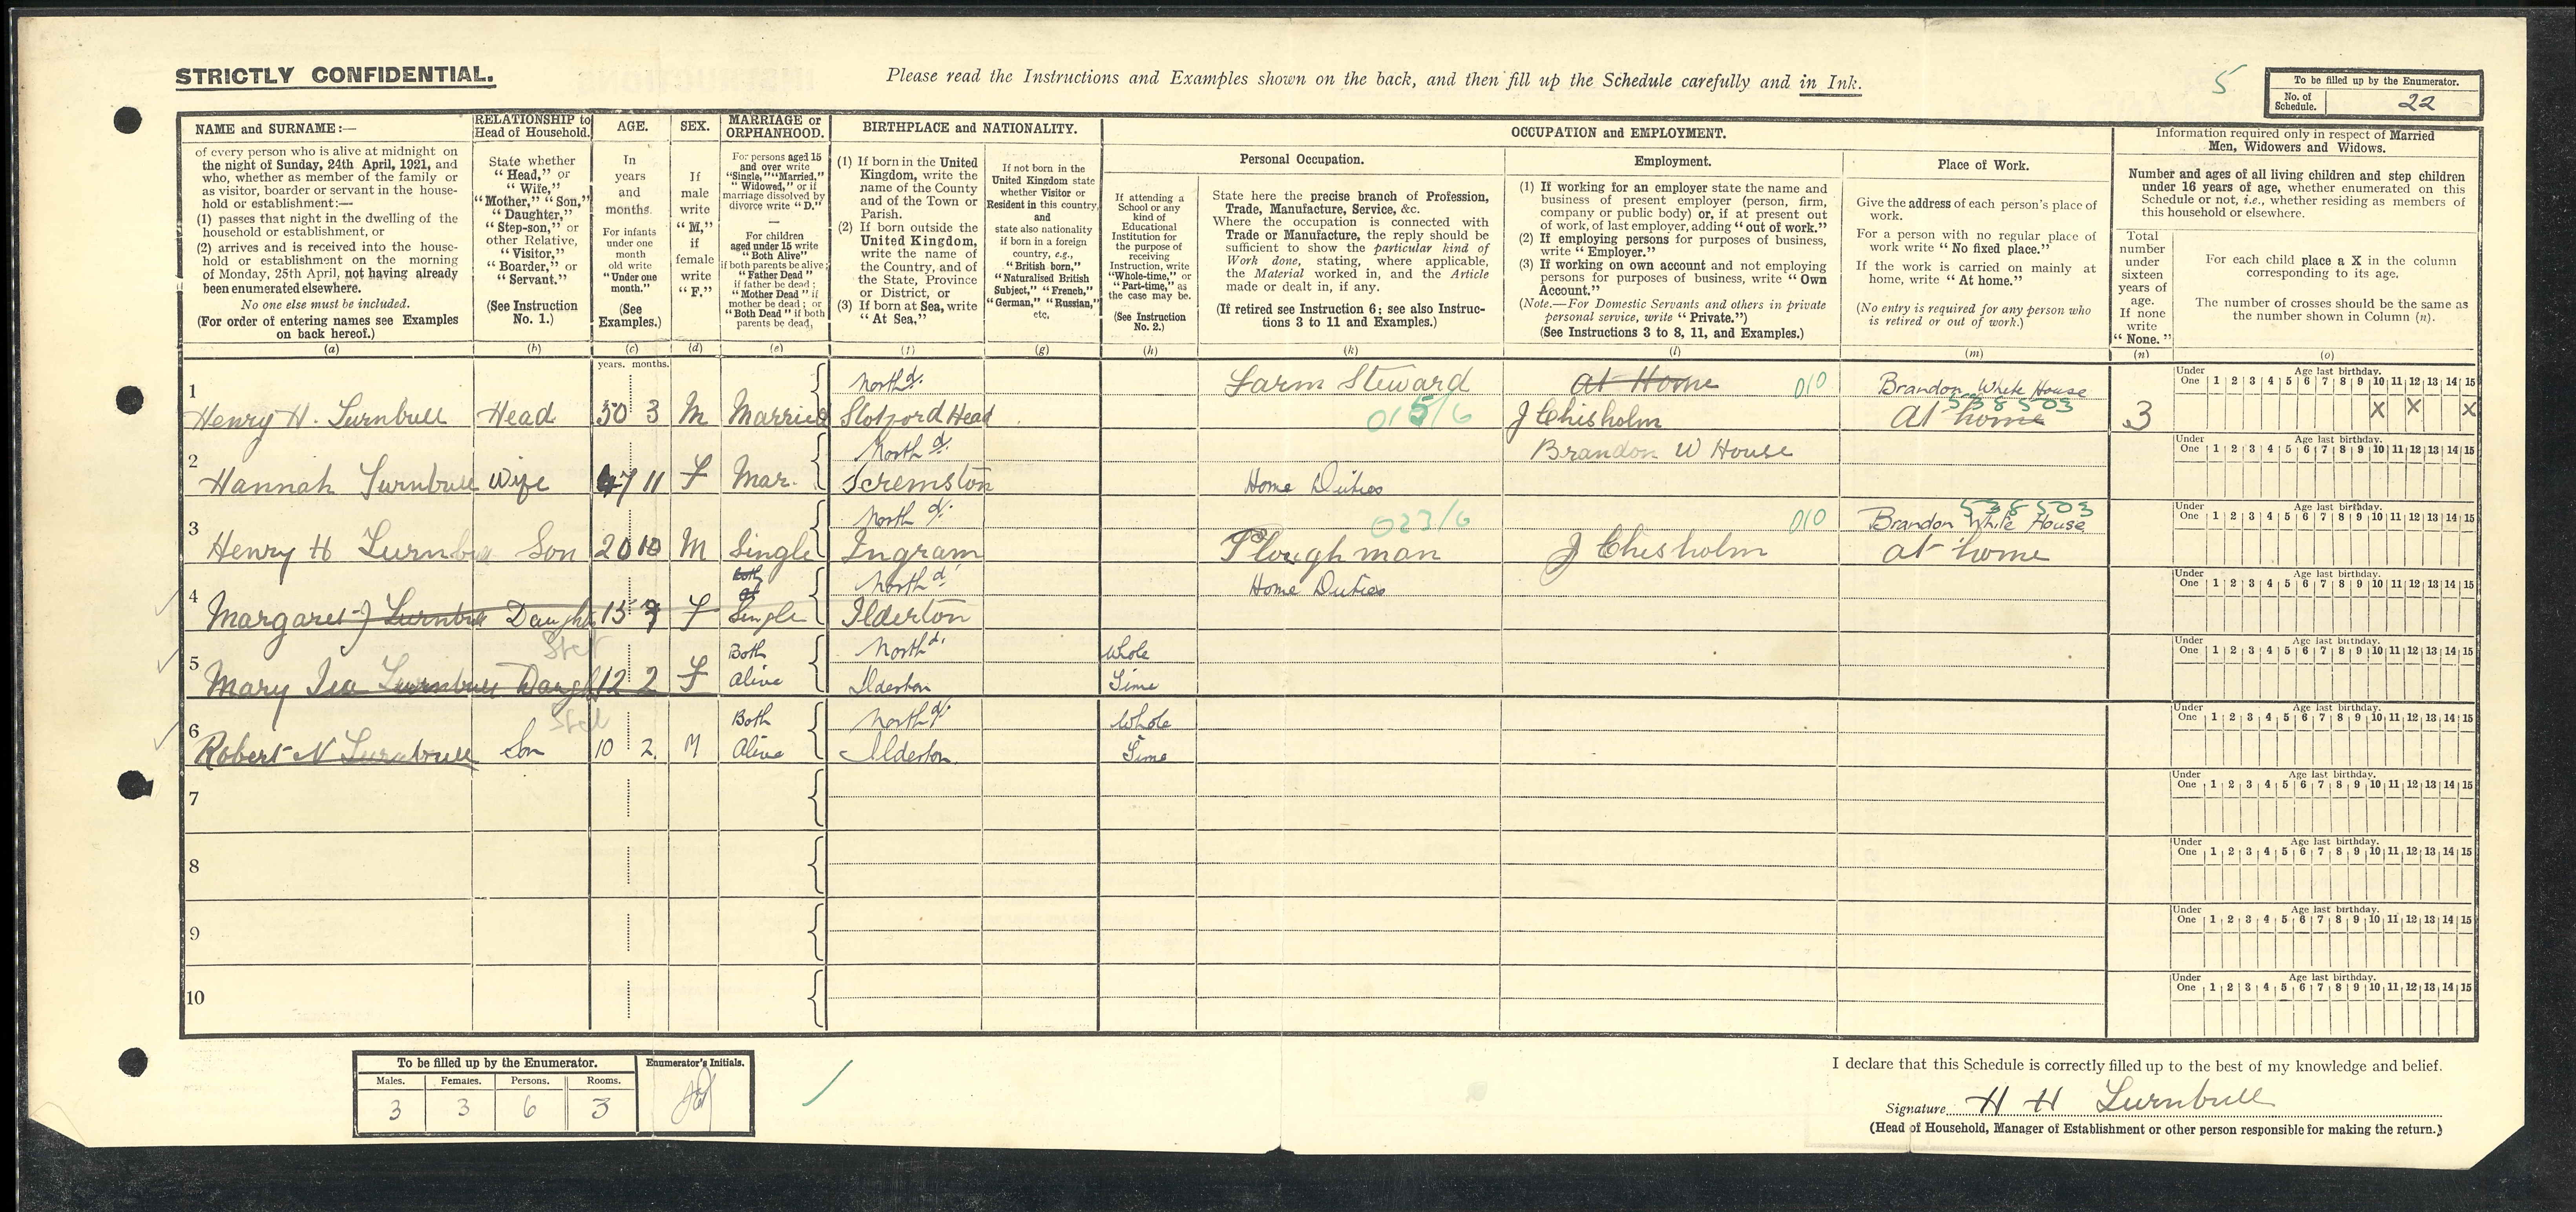 STRICTLY CONFIDENTIAL.
Please read the Instructions and Examples shown on the back, and then fill up the Schedule carefully and in Ink.
5
To be filled up by the Enumerator.
No. of Schedule. 22
NAME and SURNAME:—
of every person who is alive at midnight on
the night of Sunday, 24th April, 1921, and
who, whether as member of the family or
as visitor, boarder or servant in the house-
hold or establishment:—
(1) passes that night in the dwelling of the
household or establishment, or
(2) arrives and is received into the house-
hold or establishment on the morning
of Monday, 25th April, not having already
been enumerated elsewhere.
No one else must be included.
(For order of entering names see Examples
on back hereof.)
(a)
RELATIONSHIP to
Head of Household.
State whether
"Head," or
"Wife,"
"Mother," "Son,"
"Daughter,"
"Step-son," or
other Relative,
"Visitor,"
"Boarder," or
"Servant."
(See Instruction
No. 1.)
(b)
AGE.
In
years
and
months.
For infants
under one
month
old write
"Under one
month."
(See
Examples.)
(c)
SEX.
If
male
write
"M,"
if
female
write
"F."
(d)
MARRIAGE or
ORPHANHOOD.
For persons aged 15
and over write
"Single," "Married,"
"Widowed," or if
marriage dissolved by
divorce write "D."
—
For children
aged under 15 write
"Both Alive"
if both parents be alive;
"Father Dead"
if father be dead;
"Mother Dead" if
mother be dead; or
"Both Dead" if both
parents be dead,
(e)
BIRTHPLACE and NATIONALITY.
(1) If born in the United
Kingdom, write the
name of the County
and of the Town or
Parish.
(2) If born outside the
United Kingdom,
write the name of
the Country, and of
the State, Province
or District, or
(3) If born at Sea, write
"At Sea,"
(f)
If not born in the
United Kingdom state
whether Visitor or
Resident in this country,
and
state also nationality
if born in a foreign
country, e.g.,
"British born,"
"Naturalised British
Subject," "French,"
"German," "Russian,"
etc.
(g)
OCCUPATION and EMPLOYMENT.
Personal Occupation.
If attending a
School or any
kind of
Educational
Institution for
the purpose of
receiving
Instruction, write
"Whole-time," or
"Part-time," as
the case may be.
(See Instruction
No. 2.)
(h)
State here the precise branch of Profession,
Trade, Manufacture, Service, &c.
Where the occupation is connected with
Trade or Manufacture, the reply should be
sufficient to show the particular kind of
Work done, stating, where applicable,
the Material worked in, and the Article
made or dealt in, if any.
(If retired see Instruction 6; see also Instruc-
tions 3 to 11 and Examples.)
(k)
Employment.
(1) If working for an employer state the name and
business of present employer (person, firm,
company or public body) or, if at present out
of work, of last employer, adding "out of work."
(2) If employing persons for purposes of business,
write "Employer."
(3) If working on own account and not employing
persons for purposes of business, write "Own
Account."
(Note.—For Domestic Servants and others in private
personal service, write "Private.")
(See Instructions 3 to 8, 11, and Examples.)
(l)
Place of Work.
Give the address of each person's place of
work.
For a person with no regular place of
work write "No fixed place."
If the work is carried on mainly at
home, write "At home."
(No entry is required for any person who
is retired or out of work.)
(m)
Information required only in respect of Married
Men, Widowers and Widows.
Number and ages of all living children and step children
under 16 years of age, whether enumerated on this
Schedule or not, i.e., whether residing as members of
this household or elsewhere.
Total
number
under
sixteen
years of
age.
If none
write
"None."
(n)
For each child place a X in the column
corresponding to its age.
The number of crosses should be the same as
the number shown in Column (n).
(o)
years. months.
1 North'd. Farm Steward At Home 010 Brandon White House
Henry H. Turnbull Head 50 3 M Married Slotford Head 015/6 J Chisholm 538503 At home 3
Under One 1 2 3 4 5 6 7 8 9 10 11 12 13 14 15 Age last birthday. X X X
2 North d. Brandon W House
Hannah Turnbull Wife 47 11 F Mar. Scremston Home Duties
Under One 1 2 3 4 5 6 7 8 9 10 11 12 13 14 15 Age last birthday.
3 North d. 023/6 010 538503 Brandon White House
Henry H Turnbull Son 20 10 M Single Ingram Ploughman J Chisholm at home
Under One 1 2 3 4 5 6 7 8 9 10 11 12 13 14 15 Age last birthday.
4 both North d. Home Duties
Margaret J Turnbull Daught 15 9 F Single Ilderton
Under One 1 2 3 4 5 6 7 8 9 10 11 12 13 14 15 Age last birthday.
Stet
5 Both North d. Whole
Mary Isa Turnbull Daught 12 2 F Alive Ilderton Time
Under One 1 2 3 4 5 6 7 8 9 10 11 12 13 14 15 Age last birthday.
Stet
6 Both North d. Whole
Robert N Turnbull Son 10 2 M Alive Ilderton Time
Under One 1 2 3 4 5 6 7 8 9 10 11 12 13 14 15 Age last birthday.
7
Under One 1 2 3 4 5 6 7 8 9 10 11 12 13 14 15 Age last birthday.
8
Under One 1 2 3 4 5 6 7 8 9 10 11 12 13 14 15 Age last birthday.
9
Under One 1 2 3 4 5 6 7 8 9 10 11 12 13 14 15 Age last birthday.
10
Under One 1 2 3 4 5 6 7 8 9 10 11 12 13 14 15 Age last birthday.
To be filled up by the Enumerator.
Males. Females. Persons. Rooms.
3 3 6 3
Enumerator's Initials.
I declare that this Schedule is correctly filled up to the best of my knowledge and belief.
Signature H H Turnbull
(Head of Household, Manager of Establishment or other person responsible for making the return.)